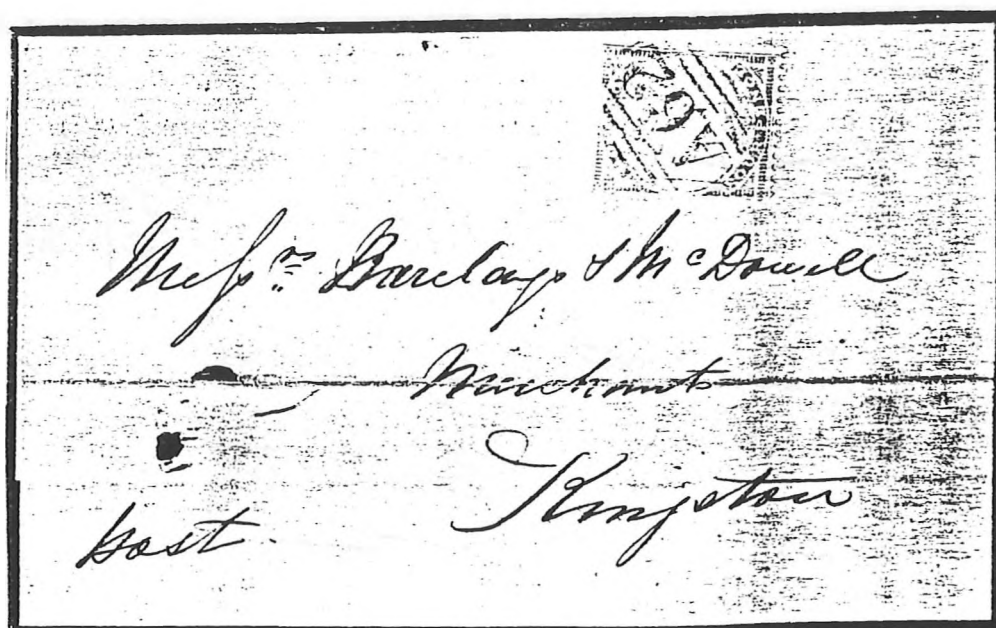 A62
Messrs Barclays & McDowell
Merchants
Kingston
Post